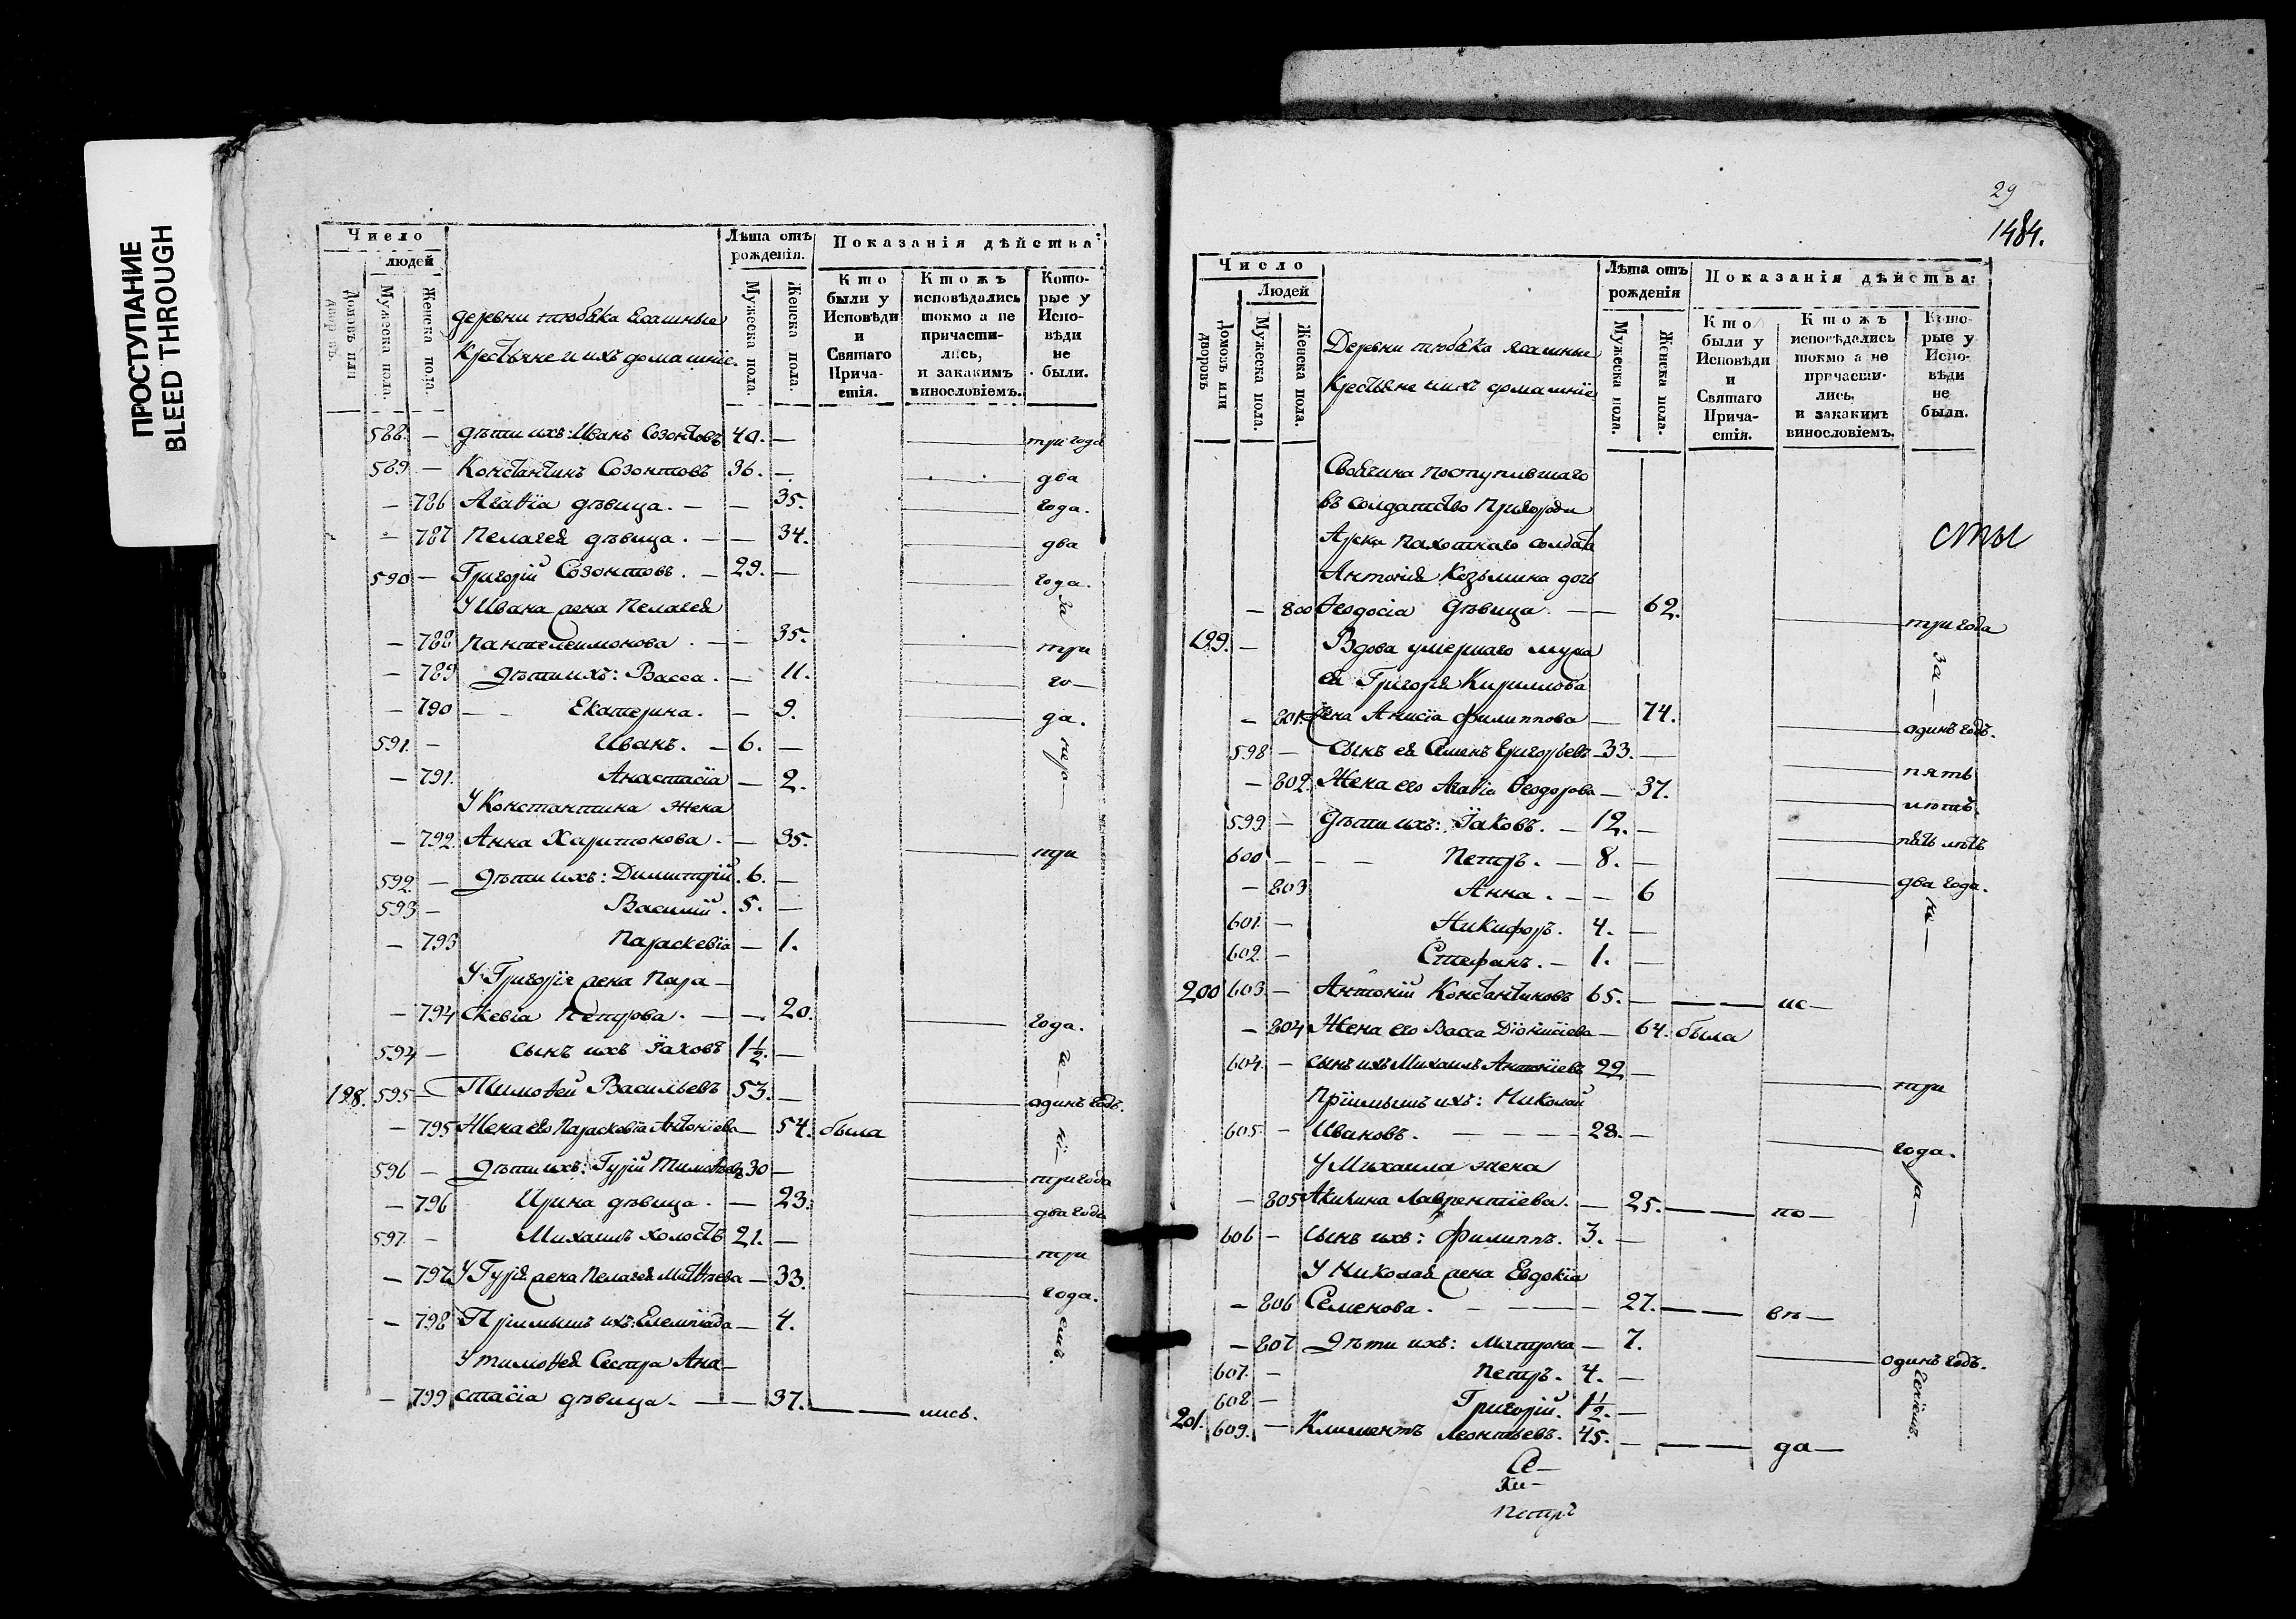 ПРОСТУПАНИЕ
BLEED THROUGH
Число
людей
Домовъ или дворовъ.
Мужеска пола.
Женска пола.
деревни тюбяка Ясашные
Крестьяне и ихъ домашніе.
Лѣта отъ рожденія.
Мужеска пола.
Женска пола.
Показанія дѣйства:
Кто были у Исповѣди и Святаго Причастія.
Ктожъ исповѣдались токмо а не причастились, и закакимъ винословіемъ.
Которые у Исповѣди не были.
588. — дѣти ихъ: Иванъ Созонтовъ 40. — три года
589 — Константинъ Созонтовъ 36. — два
— 786 Агаѳіа дѣвица. — — 35. года.
— 787 Пелагея дѣвица. — — 34. два
590 — Григорій Созонтовъ. — 29. — года.
У Ивана жена Пелагея за
— 788 Пантелеимонова. — — 35. три
— 789 дѣти ихъ: Васса. — 11. го—
— 790 — — Екатерина. — 9. да.
591. — Иванъ. — 6. —
— 791. Анастасіа — 2.
У Константина жена
— 792. Анна Харитонова. — — 35. три
592. — дѣти ихъ: Димитрій. 6. —
593 — Василій. 5. —
— 793 Параскевіа — 1.
У Григоріа жена Пара—
— 794 скевіа Петрова. — — 20. года.
594 — сынъ ихъ Іаковъ 1½. —
198. 595 — Тимоѳей Васильевъ 53. — одинъ годъ.
— 795 Жена его Параскевіа Антоніева — 54. была
596 — дѣти ихъ: Гурій Тимоѳеевъ 30 — три года
— 796 Ирина дѣвица. — 23. два года
597. — Михаилъ холостъ 21. — три
— 797 У Гурія жена Пелагея Матвѣева — 33. года.
— 798 Пріимышъ ихъ: Олимпіада — 4.
У Тимоѳея Сестра Ана—
— 799 стасіа дѣвица. — — 37. — — лись.
29
1484.
Число
Людей
Домовъ или дворовъ
Мужеска пола.
Женска пола.
Деревни тюбяка Ясашные
Крестьяне и ихъ домашніе
Лѣта отъ рожденія
Мужеска пола.
Женска пола.
Показанія дѣйства:
Кто были у Исповѣди и Святаго Причастія.
Ктожъ исповѣдались токмо а не причастились, и закакимъ винословіемъ.
Которые у Исповѣди не были.
Своячина поступившаго
въ солдатство Пригорода
Арска пахотнаго солдата
сты
Антонія Козьмина дочь
— 800 Ѳеодосіа дѣвица — — 62. три года
199. — Вдова умершаго мужа
за —
ея Григорія Кириллова
— 801 жена Анисіа Филиппова — 74. одинъ годъ.
598 — сынъ ея Семенъ Григорьевъ 33. — пять
— 802 Жена его Агаѳіа Ѳеодорова — 37. лѣтъ.
599 — дѣти ихъ: Іаковъ. — 12. — пять лѣтъ
600 — — — Петръ. — 8. —
— 803 Анна. — — 6 два года.
601. — Никифоръ. 4. —
602. — Стефанъ. — 1. —
200 603. — Антоній Константиновъ 65. — — — ис—
— 804 Жена его Васса Діонисіева — 64. была
604. — сынъ ихъ Михаилъ Антоніевъ 22 — три
Пріимышъ ихъ: Николай
605. — Ивановъ. — — — 28. — года.
У Михаила жена
— 805 Акилина Лаврентіева. — 25. — — по—
606 — сынъ ихъ: Филиппъ. 3. —
У Николая жена Евдокіа
— 806 Семенова. — — — 27. — — вѣ—
— 807 Дѣти ихъ: Матрона — 7. одинъ годъ.
607. — Петръ. 4. —
608 — Григорій. 1½. —
201. 609. — Климентъ Леонтьевъ. 45. — — — да—